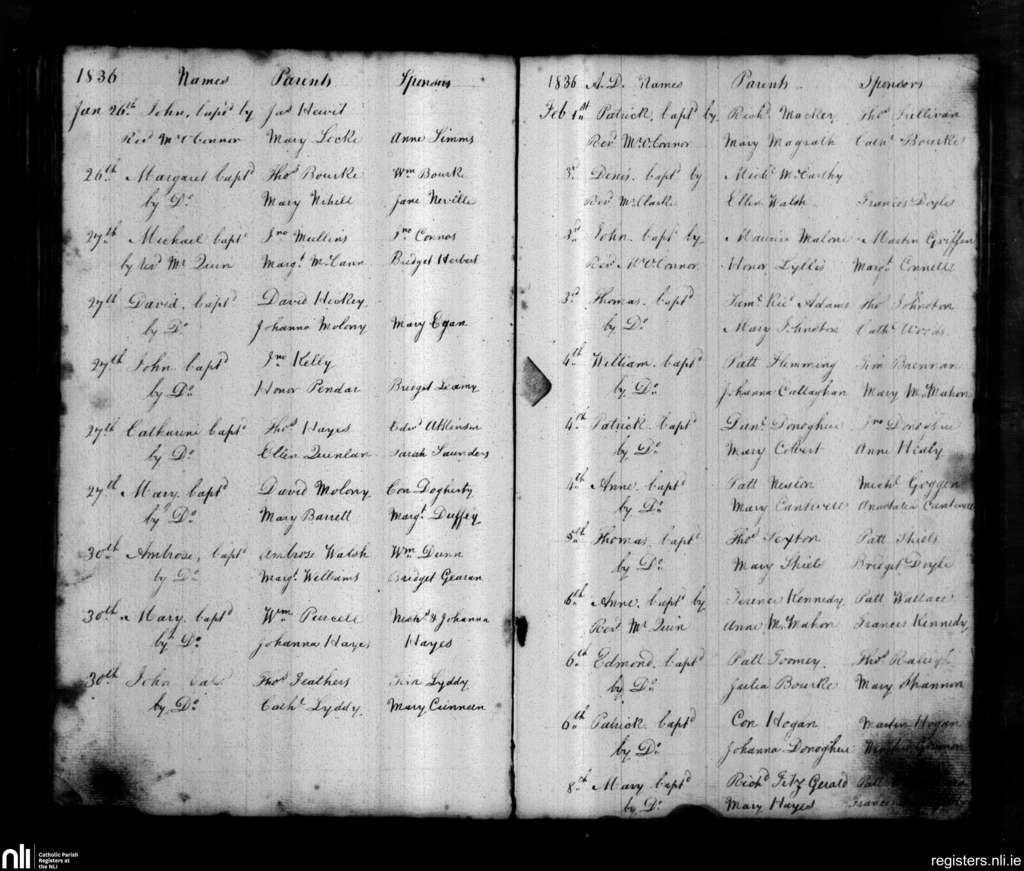 1836 Names Parents Sponsors
Jan 26th John, bapd by Jas Hewit
Revd Mr O'Connor Mary Locke Anne Simms
26th Margaret bapd Thos Bourke Wm Bourke
by Do Mary Nihell Jane Neville
27th Michael bapd Jno Mullins Jno Connos
by revd Mr Quin Margt McCann Bridget Herbert
27th David, bapd David Hickey
by Do Johanna Molony Mary Egan
27th John bapd Jno Kelly
by Do Honor Pendar Bridget Leamy
27th Catharine bapd Thos Hayes Edwd Atkinson
by Do Ellen Quinlan Sarah Saunders
27th Mary bapd David Molony Con Dogherty
by Do Mary Barrett Margt Duffey
30th Ambrose, bapd Ambrose Walsh Wm Dunn
by Do Margt Williams Bridget Gearan
30th Mary, bapd Wm Purcell Michl & Johanna
by Do Johanna Hayes Hayes
30th John Thos Feathers Lyddy
by Do Cathe Lyddy Mary Cunneen
1836 A.D. Names Parents Sponsors
Feb 1st Patrick, bapd by Richd Mackey Thos Sullivan
Revd Mr O'Connor Mary Magrath Cathe Bourke
3d Denis, bapd by Michl McCarthy
Revd Mr Clarke Ellen Walsh Frances Doyle
2d John bapd by Maurice Malone Martin Griffin
Revd Mr O'Connor Honor Lyllis Margt Connell
3d Thomas, bapd Adams Thos Johnston
by Do Mary Johnston Cathe Woods
4th William, bapd Patt Flemming Tim Brennan
by Do Johanna Callaghan Mary McMahon
4th Patrick, bapd Danl Donoghue Jno Donoghue
by Do Mary Colbert Anne Healy
4th Anne, bapd Patt Neslon Michl Goggin
by Do Mary Cantwell Anastatia Cantwell
5th Thomas, bapd Thos Sexton Patt Shiels
by Do Mary Shiels Bridget Doyle
6th Anne, bapd by Terence Kennedy Patt Wallace
Revd Mr Quin Anne McMahon Frances Kennedy
6th Edmond, bapd Patt Toomey Thos Raleigh
by Do Julia Bourke Mary Shannon
6th Patrick, bapd Con Hogan Martin Hogan
by Do Johanna Donoghue
8th Mary bapd Richd Fitz Gerald Patt
by Do Mary Hayes Frances
nli Catholic Parish
Registers at
the NLI
registers.nli.ie